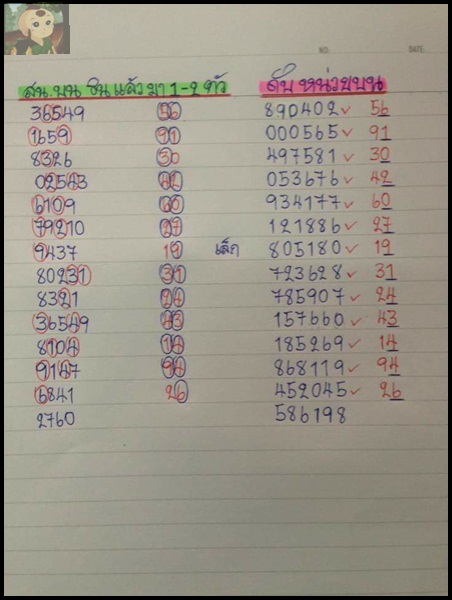 NO. DATE.
สน.บน ชิน แล้ว มา 1-2 ตัว ดับ หน่วยบน
36549 56 890402 ✓ 56
1659 91 000565 ✓ 91
8326 30 497581 ✓ 30
02543 42 053676 ✓ 42
6109 60 934177 ✓ 60
79210 27 121886 ✓ 27
9437 19 เล็ก 805180 ✓ 19
80231 31 723628 ✓ 31
8321 24 785907 ✓ 24
36549 43 157660 ✓ 43
8104 14 185269 ✓ 14
9147 94 868119 ✓ 94
6841 26 452045 ✓ 26
2760 586198